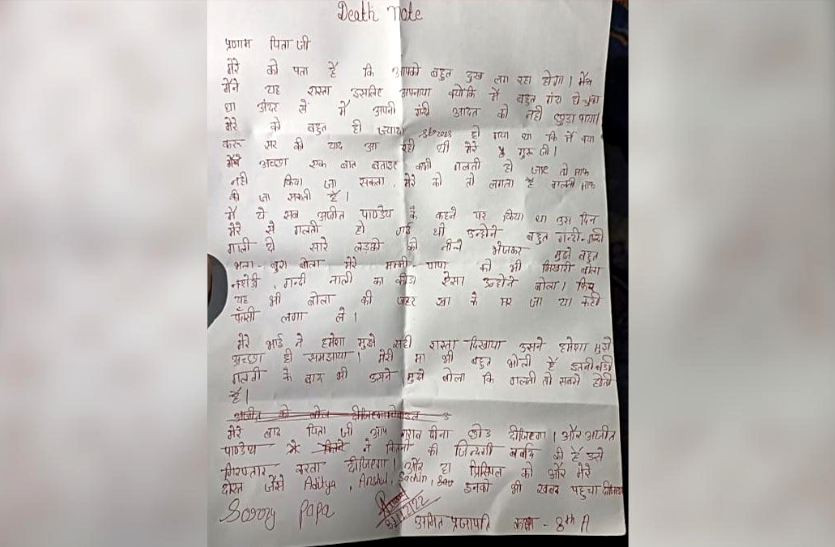 Death Note
प्रणाम पिता जी
मेरे को पता है कि आपको बहुत दुख लग रहा होगा।
मैंने यह रास्ता इसलिए अपनाया क्योंकि मैं बहुत
था अंदर से मैं अपनी गंदी आदत को नही छुड़ा पाया।
मेरे को बहुत ही ज्यादा हो गया था कि मैं क्या
करू सर की याद आ रही थी मेरे गुरू जी।
अच्छा एक बात बताइए कभी गलती हो जाए तो माफ
नही किया जा सकता, मेरे को तो लगता है गलती माफ
की जा सकती है।
मैं ये सब अजीत पाण्डेय के कहने पर किया था उस दिन
मेरे से गलती हो गई थी उन्होंने बहुत गन्दी-गन्दी
गाली दी सारे लड़को को नीचे भेजकर मुझे बहुत
भला-बुरा बोला मेरे मम्मी-पापा को भी भिखारी बोला
गन्दी नाली का कीड़ा ऐसा उन्होंने बोला। फिर
यह भी बोला की जहर खा के मर जा या कही
फाँसी लगा ले।
मेरे भाई ने हमेशा मुझे सही रास्ता दिखाया उसने हमेशा मुझे
अच्छा ही समझाया। मेरी मा भी बहुत भोली है इतनी बड़ी
गलती के बाद भी उसने मुझे बोला कि गलती तो सबसे होती
है।
मेरे बाद पिता जी आप शराब पीना छोड़ दीजिएगा। और अजीत
पाण्डेय ने कितनो की जिन्दगी बर्बाद की है उसे
गिरफ्तार करवा दीजिएगा। और हा प्रिंसिपल को और मेरे
दोस्त जैसे Aditya, Anshul, Sachin, उनको भी खबर पहुचा दीजिएगा
Sorry Papa
अमित प्रजापति कक्षा - 8th A